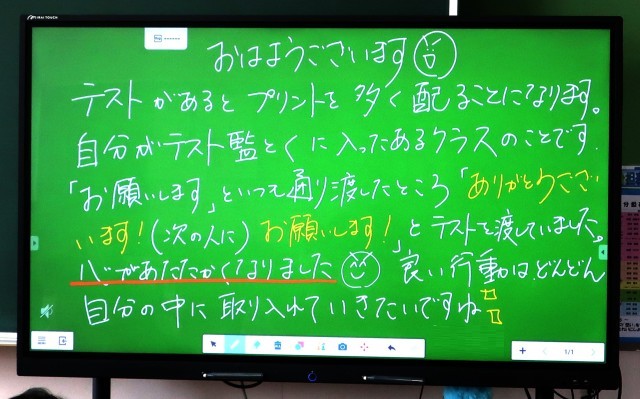 おはようございます
テストがあるとプリントを多く配ることになります。
自分がテスト監とくに入ったあるクラスのことです.
「お願いします」といつも通り渡したところ「ありがとうござい
います!(次の人に)お願いします!」とテストを渡していました。
心があたたかくなりました 良い行動はどんどん
自分の中に取り入れていきたいですね
1/1